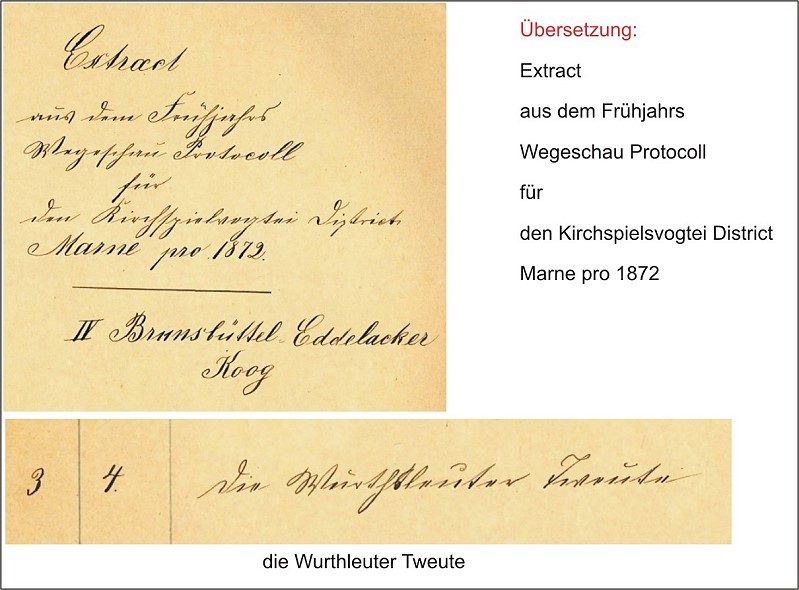 Extract
aus dem Frühjahrs
Wegeschau Protocoll
für
den Kirchspielvogtei District
Marne pro 1872.
IV Brunsbüttel-Eddelacker
Koog
Übersetzung:
Extract
aus dem Frühjahrs
Wegeschau Protocoll
für
den Kirchspielsvogtei District
Marne pro 1872
3 4. Die Wurthleuter Tweute
die Wurthleuter Tweute